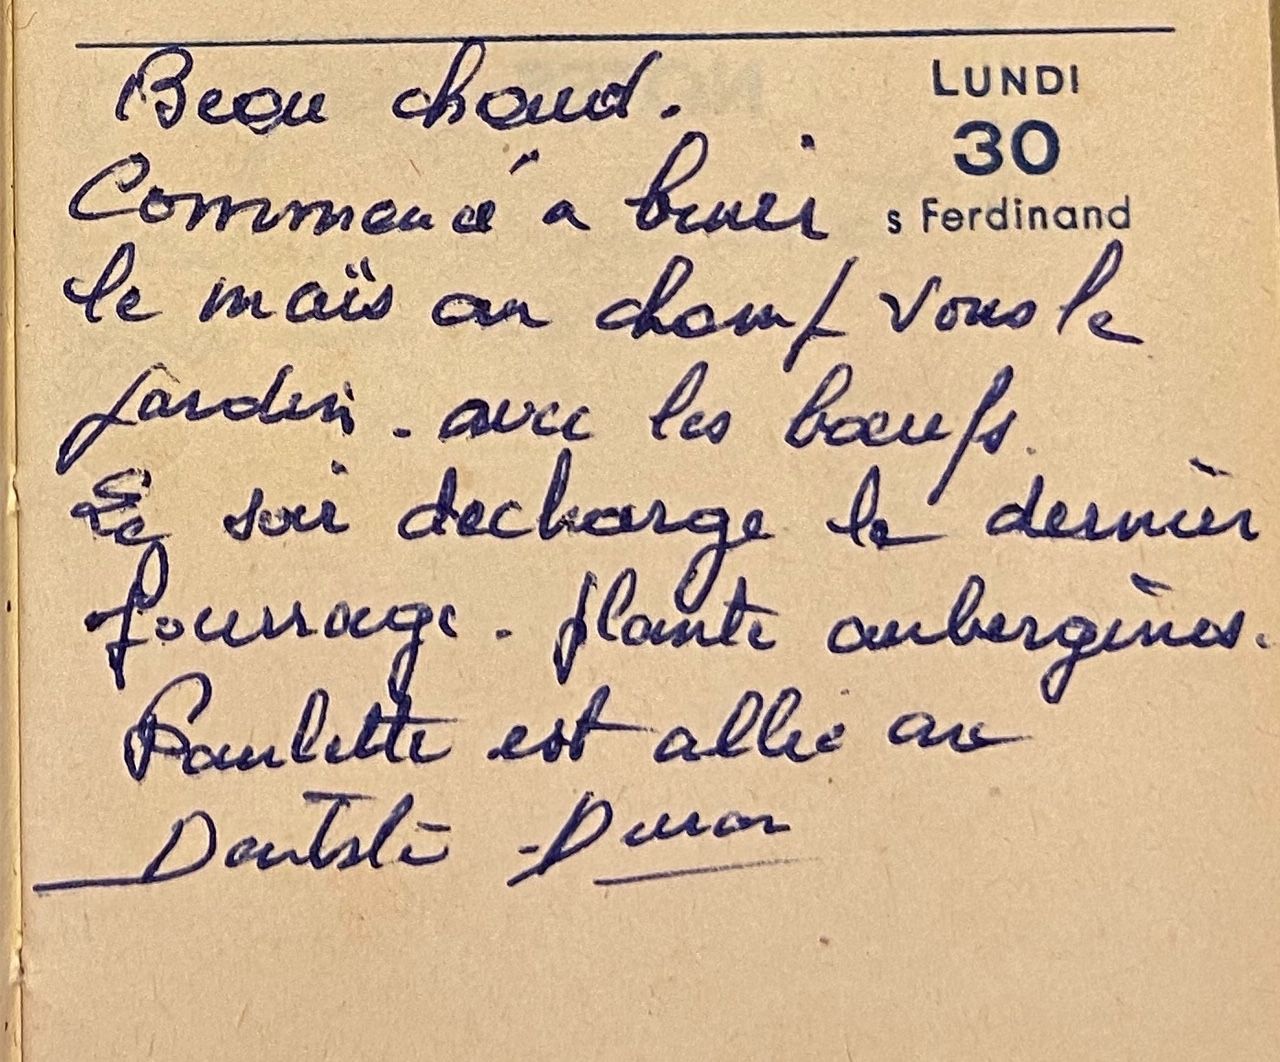 Beau chaud.
LUNDI
30
s Ferdinand
Commencé a biner
le maïs au champ sous le
jardin. avec les bœufs.
Le soir decharge le dernier
fourrage. plante aubergines.
Paulette est allée au
Dentiste - Duran